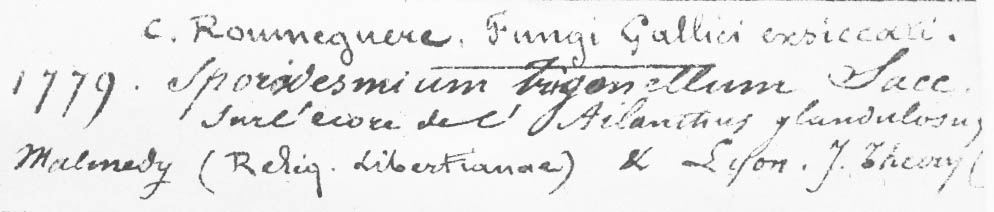 C. Roumeguere. Fungi Gallici exsiccati.
1779. Sporidesmium trigonellum Sacc.
Sur l'ecore de l' Ailanthus glandulosus
Malmedy (Reliq. Libertianae) & Lyon. J. Therry (